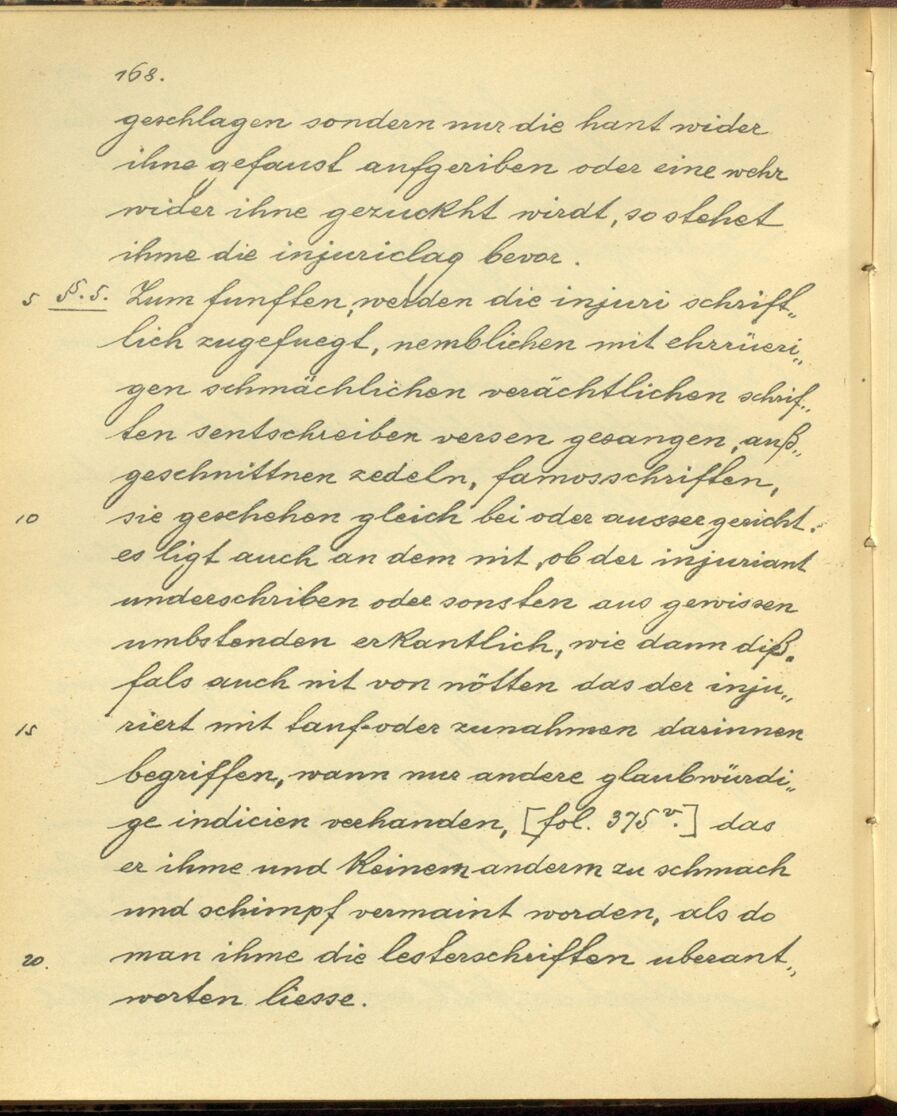 168.
geschlagen sondern nur die hant wider
ihne gefaust aufgeriben oder eine wehr
wider ihne gezuckht wirdt, so stehet
ihme die injuriclag bevor.
5 §. 5. Zum funften, werden die injuri schrift„
lich zugefuegt, nemblichen mit ehrrüeri„
gen schmächlichen verächtlichen schrif„
ten sentschreiben versen gesangen, auß„
geschnittnen zedeln, famosschriften,
10 sie geschehen gleich bei oder ausser gericht.
es ligt auch an dem nit, ob der injuriant
underschriben oder sonsten aus gewissen
umbstenden erkantlich, wie dann diß„
fals auch nit von nötten das der inju„
15 riert mit tauf- oder zunahmen darinnen
begriffen, wann nur andere glaubwürdi„
ge indicien verhanden, [fol. 375 v.] das
er ihme und keinem anderm zu schmach
und schimpf vermaint worden, als do
20. man ihme die lesterschriften uberant„
worten liesse.